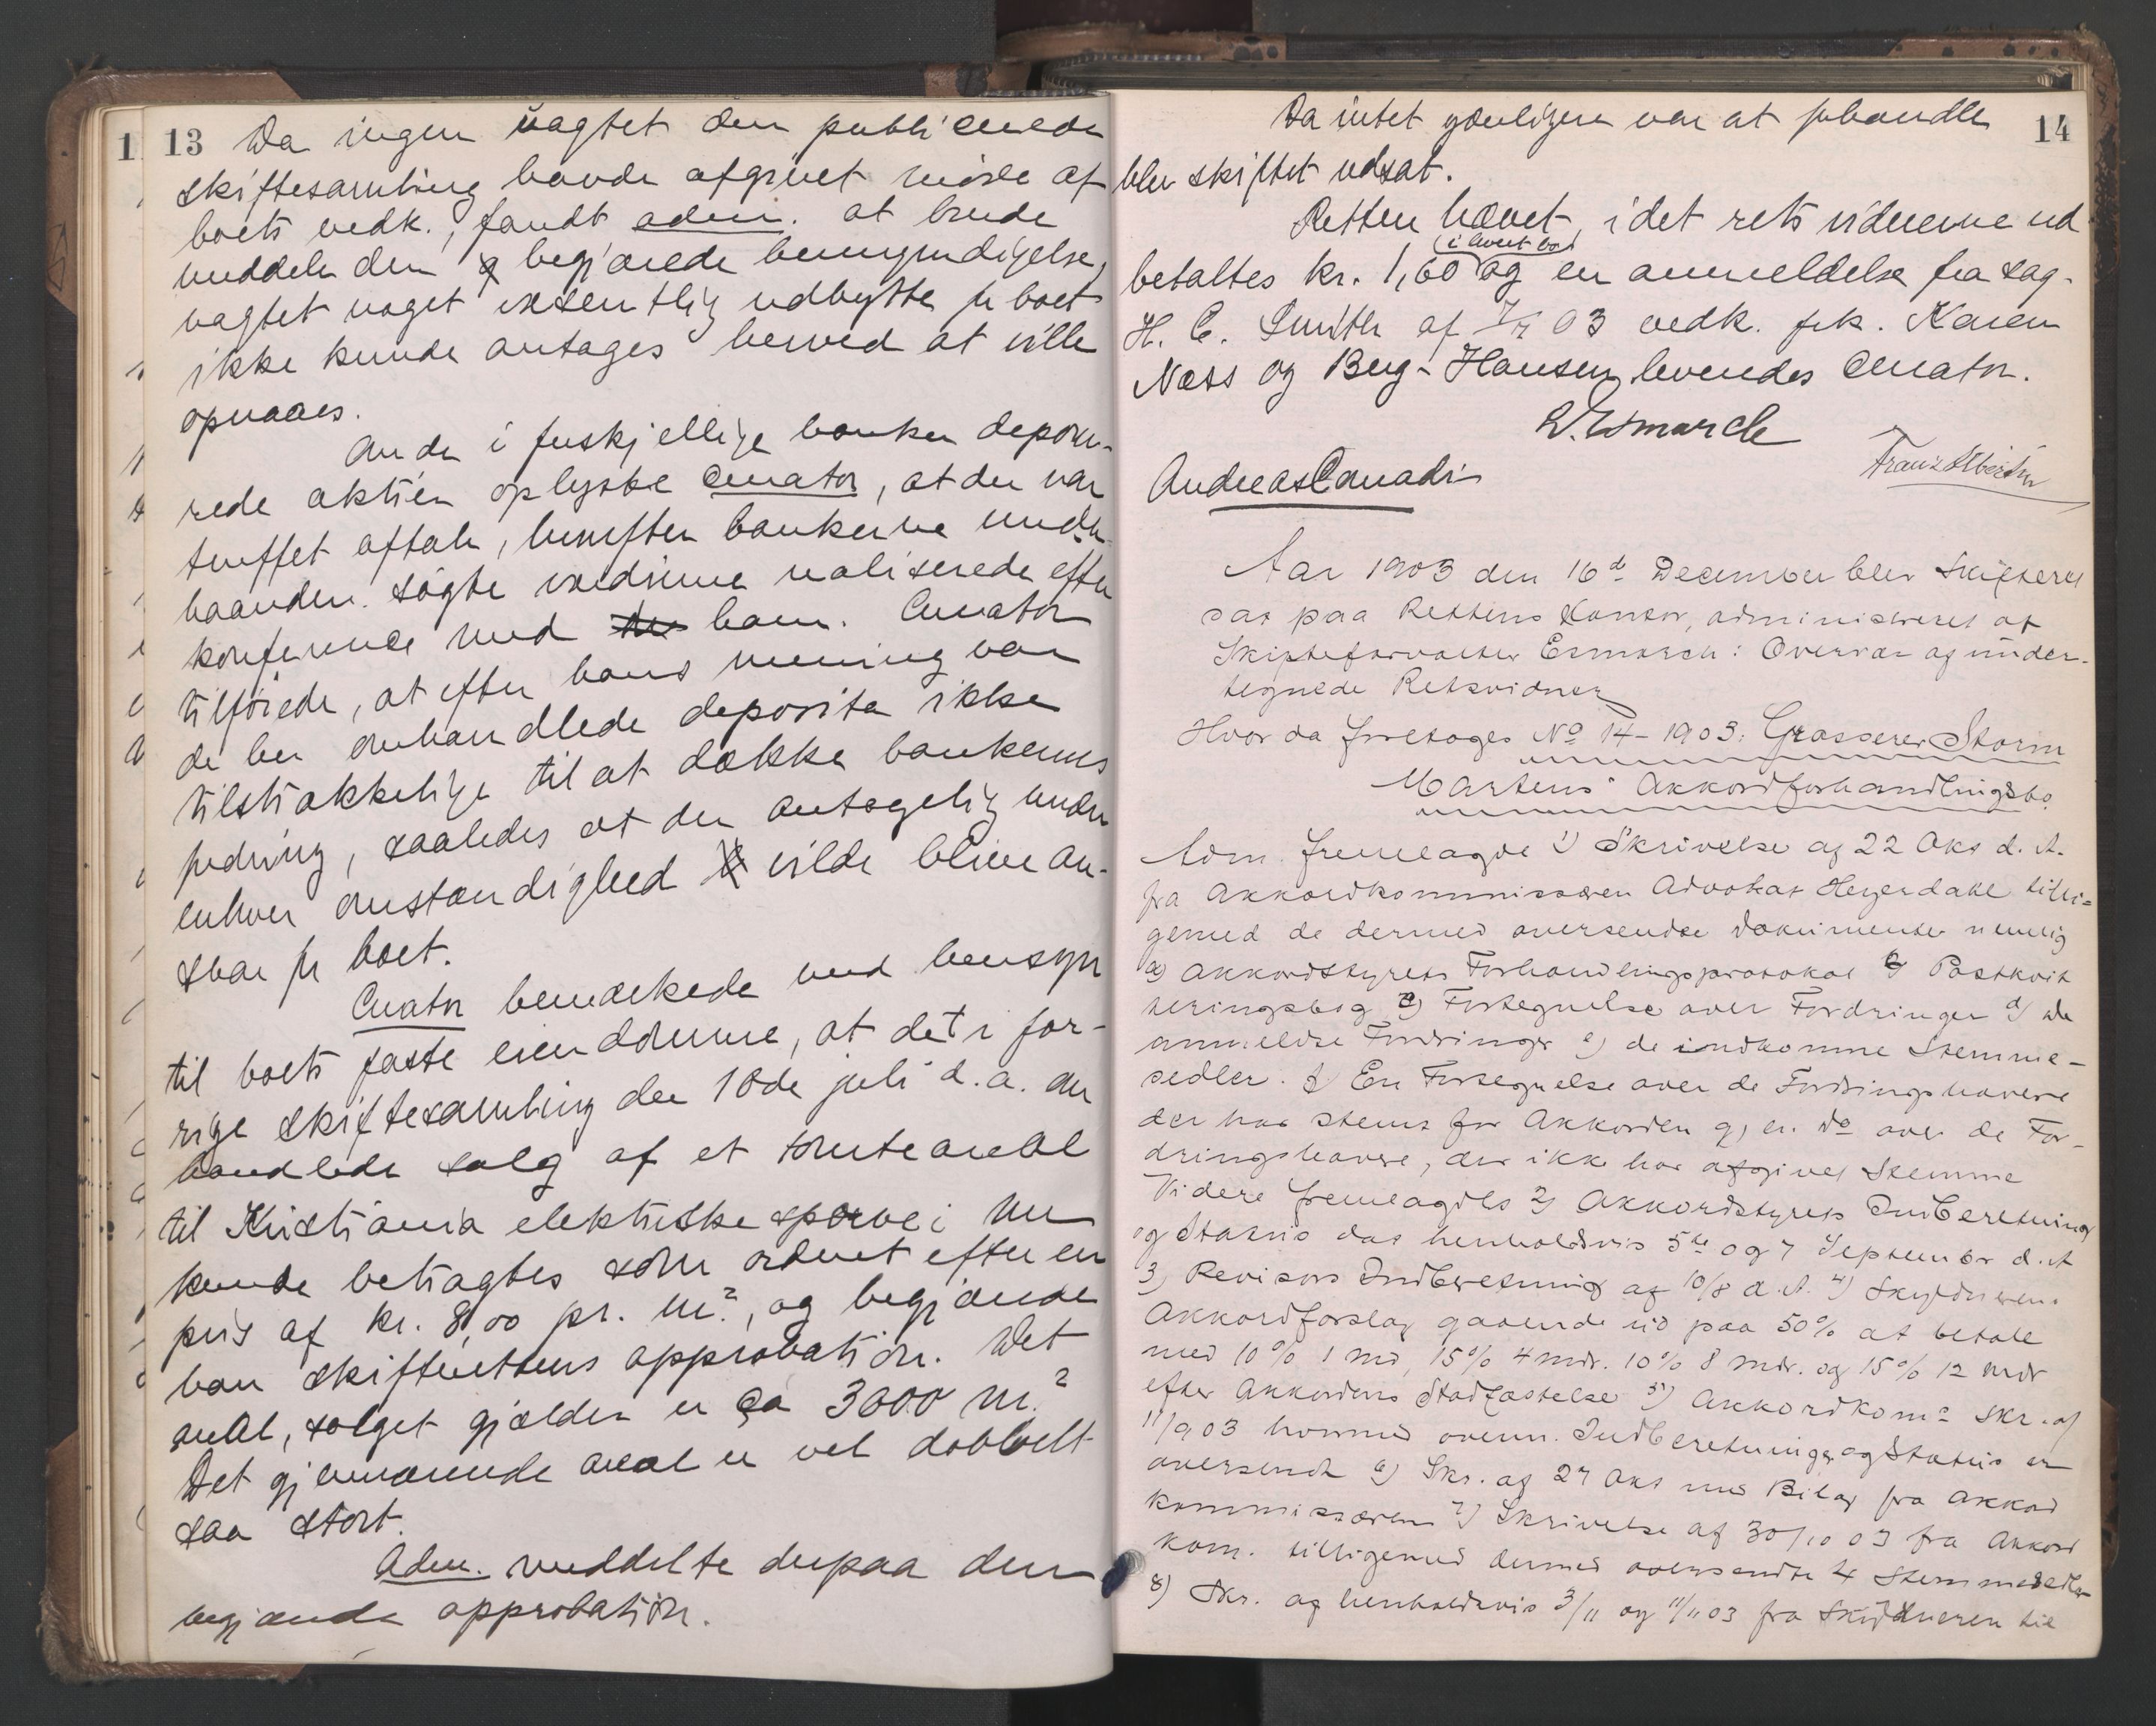 13
Da ingen uagtet den publicerede
skiftesamling havde afgivet møde af
boets vedk., fandt adm. at burde
meddele den begjærede bemyndigelse,
uagtet noget væsentlig udbytte for boet
ikke kunde antages herved at ville
opnaaes.
An de i forskjellige banker depone-
rede aktier oplyste curator, at der var
truffet aftale, hvorefter bankerne under-
haanden søgte værdierne realiserede efter
konference med ham. Curator
tilføiede, at efter hans mening var
de her omhandlede deposita ikke
tilstrækkelige til at dække bankernes
fordring, saaledes at der antagelig under
enhver omstændighed vilde blive an-
svar for boet.
Curator bemærkede med hensyn
til boets faste eiendomme, at det i for-
rige skiftesamling den 18de juli d.a. om
handlede salg af et tomteareal
til Kristiania elektriske sporvei nu
kunde betragtes som ordnet efter en
pris af kr. 8,00 pr. m², og begjærede
han skifterettens approbation. Det
areal, salget gjælder er ca 3000 m.²
Det gjenværende areal er vel dobbelt
saa stort.
Adm. meddelte derpaa den
begjærede approbation.
14
Da intet yderligere var at forhandle
blev skiftet udsat.
Retten hævet, idet retsvidnerne ud-
(i hvert bo)
betaltes kr. 1,60 og en anmeldelse fra sag-
H. C. Smith af 03 vedk. frk. Karen
Næss og Berg-Hansen leveredes curator.
Esmarch
Andreas Conradi
Franz
Aar 1903 den 16d December blev Skifteret
sat paa Rettens Kontor, administreret af
Skifteforvalter Esmarch: Overvar af under-
tegnede Retsvidner
Hvor da foretages No 14-1903: Grosserer Storm
Martens' Akkordforhandlingsbo.
Adm. fremlagde 1) Skrivelse af 22 Okt d. A.
fra Akkordkommissæren Advokat Heyerdahl tilli=
gemed de dermed oversendte Dokumenter nemlig
a) Akkordstyrets Forhandlingsprotokol b) Postkvit
teringsbog c) Fortegnelse over Fordringer d) de
anmeldte Fordringer e) de indkomne Stemme-
sedler. f) En Fortegnelse over de Fordringshavere
der har stemt for Akkorden g) en do over de For-
dringshavere, der ikke har afgivet Stemme
Videre fremlagdes 2) Akkordstyrets Indberetning
og Status dat henholdsvis 5te og 7 September d. A
3) Revisors Indberetning af 10/8 d. A. 4) Skyldnerens
Akkordforslag gaaende ud paa 50% at betale
med 10% 1 Md, 15% 4 mdr. 10% 8 mdr. og 15% 12 mdr
efter Akkordens Stadfæstelse 5) Akkordkoms skr. af
11/9 03 hvormed ovenn. Indberetninger og Status er
oversendt 6) Skr. af 27 Okt med Bilag fra Akkord
kommissæren 7) Skrivelse af 30/10 03 fra Akkord
kom. tilligemed dermed oversendte 4 Stemmesedler
8) Skr. af henholdsvis 3/11 og 11/11 03 fra Skyldneren til